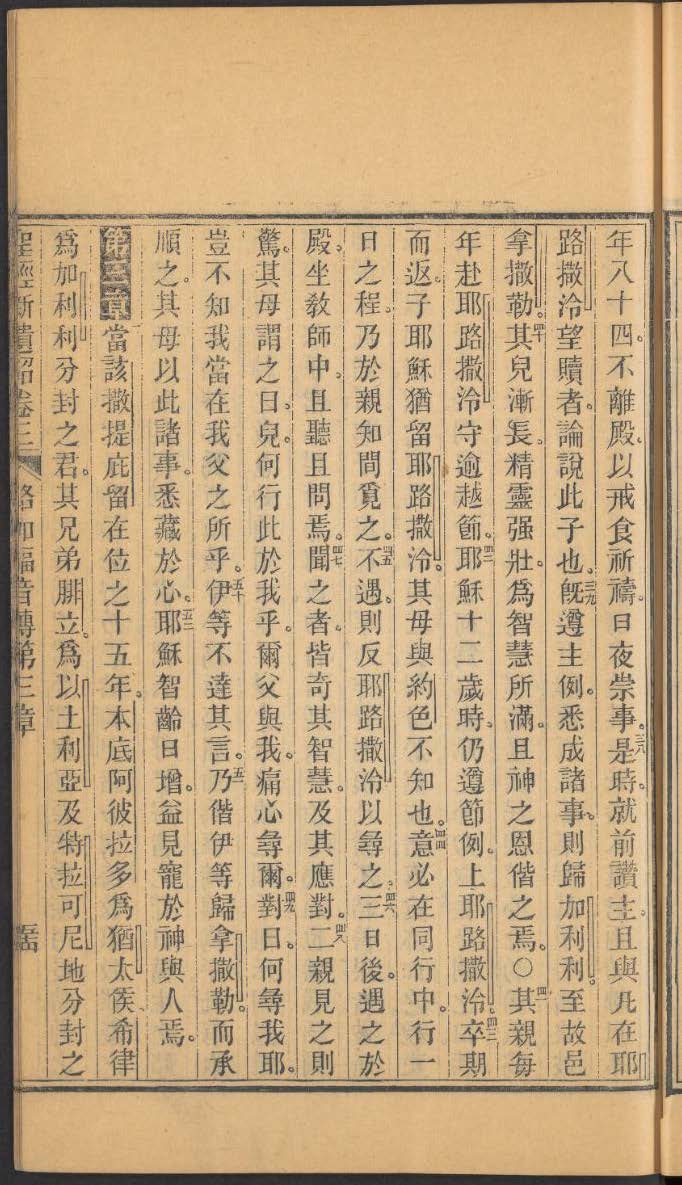 年八十四。不離殿。以戒食祈禱。日夜崇事。三八是時。就前讚主。且與凡在耶
路撒冷望贖者。論說此子也。三九既遵主例。悉成諸事。則歸加利利。至故邑
拿撒勒。四十其兒漸長。精靈强壯。爲智慧所滿。且神之恩偕之焉。○四一其親每
年赴耶路撒冷守逾越節。四二耶穌十二歲時。仍遵節例。上耶路撒冷。四三卒期
而返。子耶穌猶留耶路撒冷。其母與約色不知也。四四意必在同行中。行一
日之程。乃於親知間覓之。四五不遇。則反耶路撒冷以尋之。四六三日後。遇之於
殿。坐敎師中。且聽且問焉。四七聞之者。皆奇其智慧。及其應對。四八二親見之則
驚。其母謂之曰。兒。何行此於我乎。爾父與我。痛心尋爾。四九對曰。何尋我耶。
豈不知我當在我父之所乎。五十伊等不達其言。五一乃偕伊等歸拿撒勒。而承
順之。其母以此諸事。悉藏於心。五二耶穌智齡日增。益見寵於神與人焉。
第三章當該撒提庇留在位之十五年。本底阿彼拉多爲猶太侯、希律
爲加利利分封之君。其兄弟腓立。爲以土利亞及特拉可尼地分封之
聖經新遺詔卷三 路加福音傳第三章